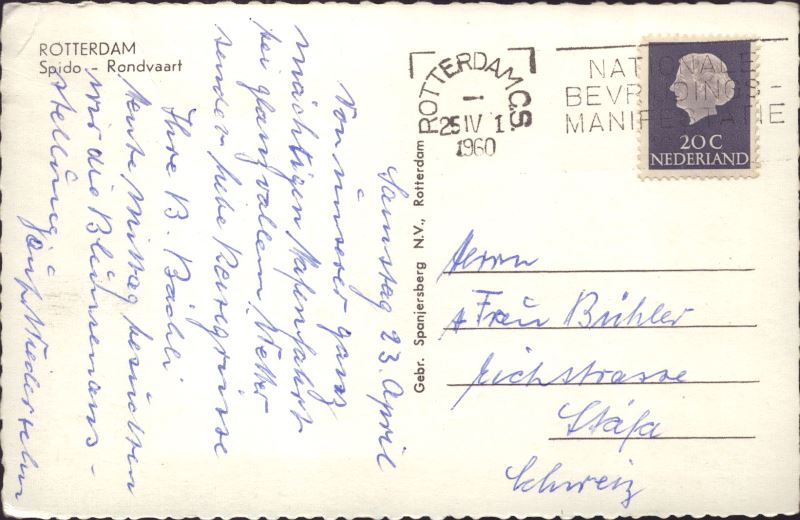 ROTTERDAM
Spido - Rondvaart
Samstag 23. April
Von unserer ganz
mächtigen Hafenfahrt
bei glanzvollem Wetter
senden liebe Reisegrüsse
Ihre B. Bächli
heute Mittag besuchten
wir die Blumenaus-
stellung
Auf Wiedersehn
Gebr. Spanjersberg N.V., Rotterdam
ROTTERDAM C.S.
25 IV 1
1960
NATIONALE
BEVRIJDINGS-
MANIFESTATIE
20 C
NEDERLAND
Herrn
+ Frau Bühler
Eichstrasse
Stäfa
Schweiz